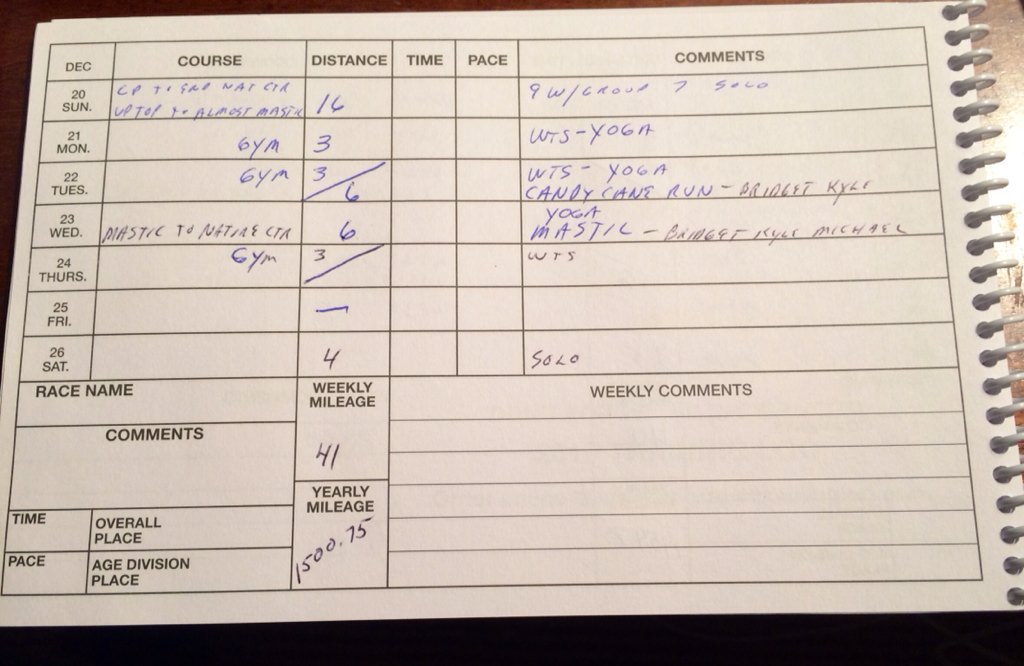 DEC COURSE DISTANCE TIME PACE COMMENTS
20 SUN. CP TO END NAT CTR 16 9 W/GROUP 7 SOLO
UP TOP TO ALMOST MASTIC
21 MON. GYM 3 WTS-YOGA
22 TUES. GYM 3/6 WTS - YOGA
CANDY CANE RUN - BRIDGET KYLE
23 WED. MASTIC TO NATURE CTR 6 YOGA
MASTIC - BRIDGET KYLE MICHAEL
24 THURS. GYM 3/ WTS
25 FRI. —
26 SAT. 4 SOLO
RACE NAME WEEKLY MILEAGE WEEKLY COMMENTS
COMMENTS 41
YEARLY MILEAGE
1500.75
TIME OVERALL PLACE
PACE AGE DIVISION PLACE